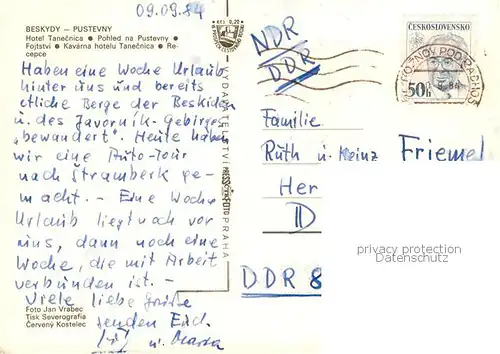 09.09.84
BESKYDY — PUSTEVNY
Hotel Tanečnica ● Pohled na Pustevny ●
Fojtství ● Kavárna hotelu Tanečnica ● Re-
cepce
Haben eine Woche Urlaub
hinter uns und bereits
etliche Berge der Beskiden
u. des Javorník-Gebirges
"bewandert". Heute haben
wir eine Auto-Tour
nach Stramberk ge-
macht. - Eine Woche
Urlaub liegt noch vor
uns, dann noch eine
Woche, die mit Arbeit
verbunden ist. -
Viele liebe Grüße
senden Euch
u.
Foto Jan Vrabec
Tisk Severografia
Červený Kostelec
Kčs 0,20
VYDAVATELSTVÍ
PRAHA
NDR
DDR
ČESKOSLOVENSKO
50h
ROŽNOV POD RADHOŠ
Familie
Ruth u. Heinz Friemel
Her
DDR 8
privacy protection
Datenschutz